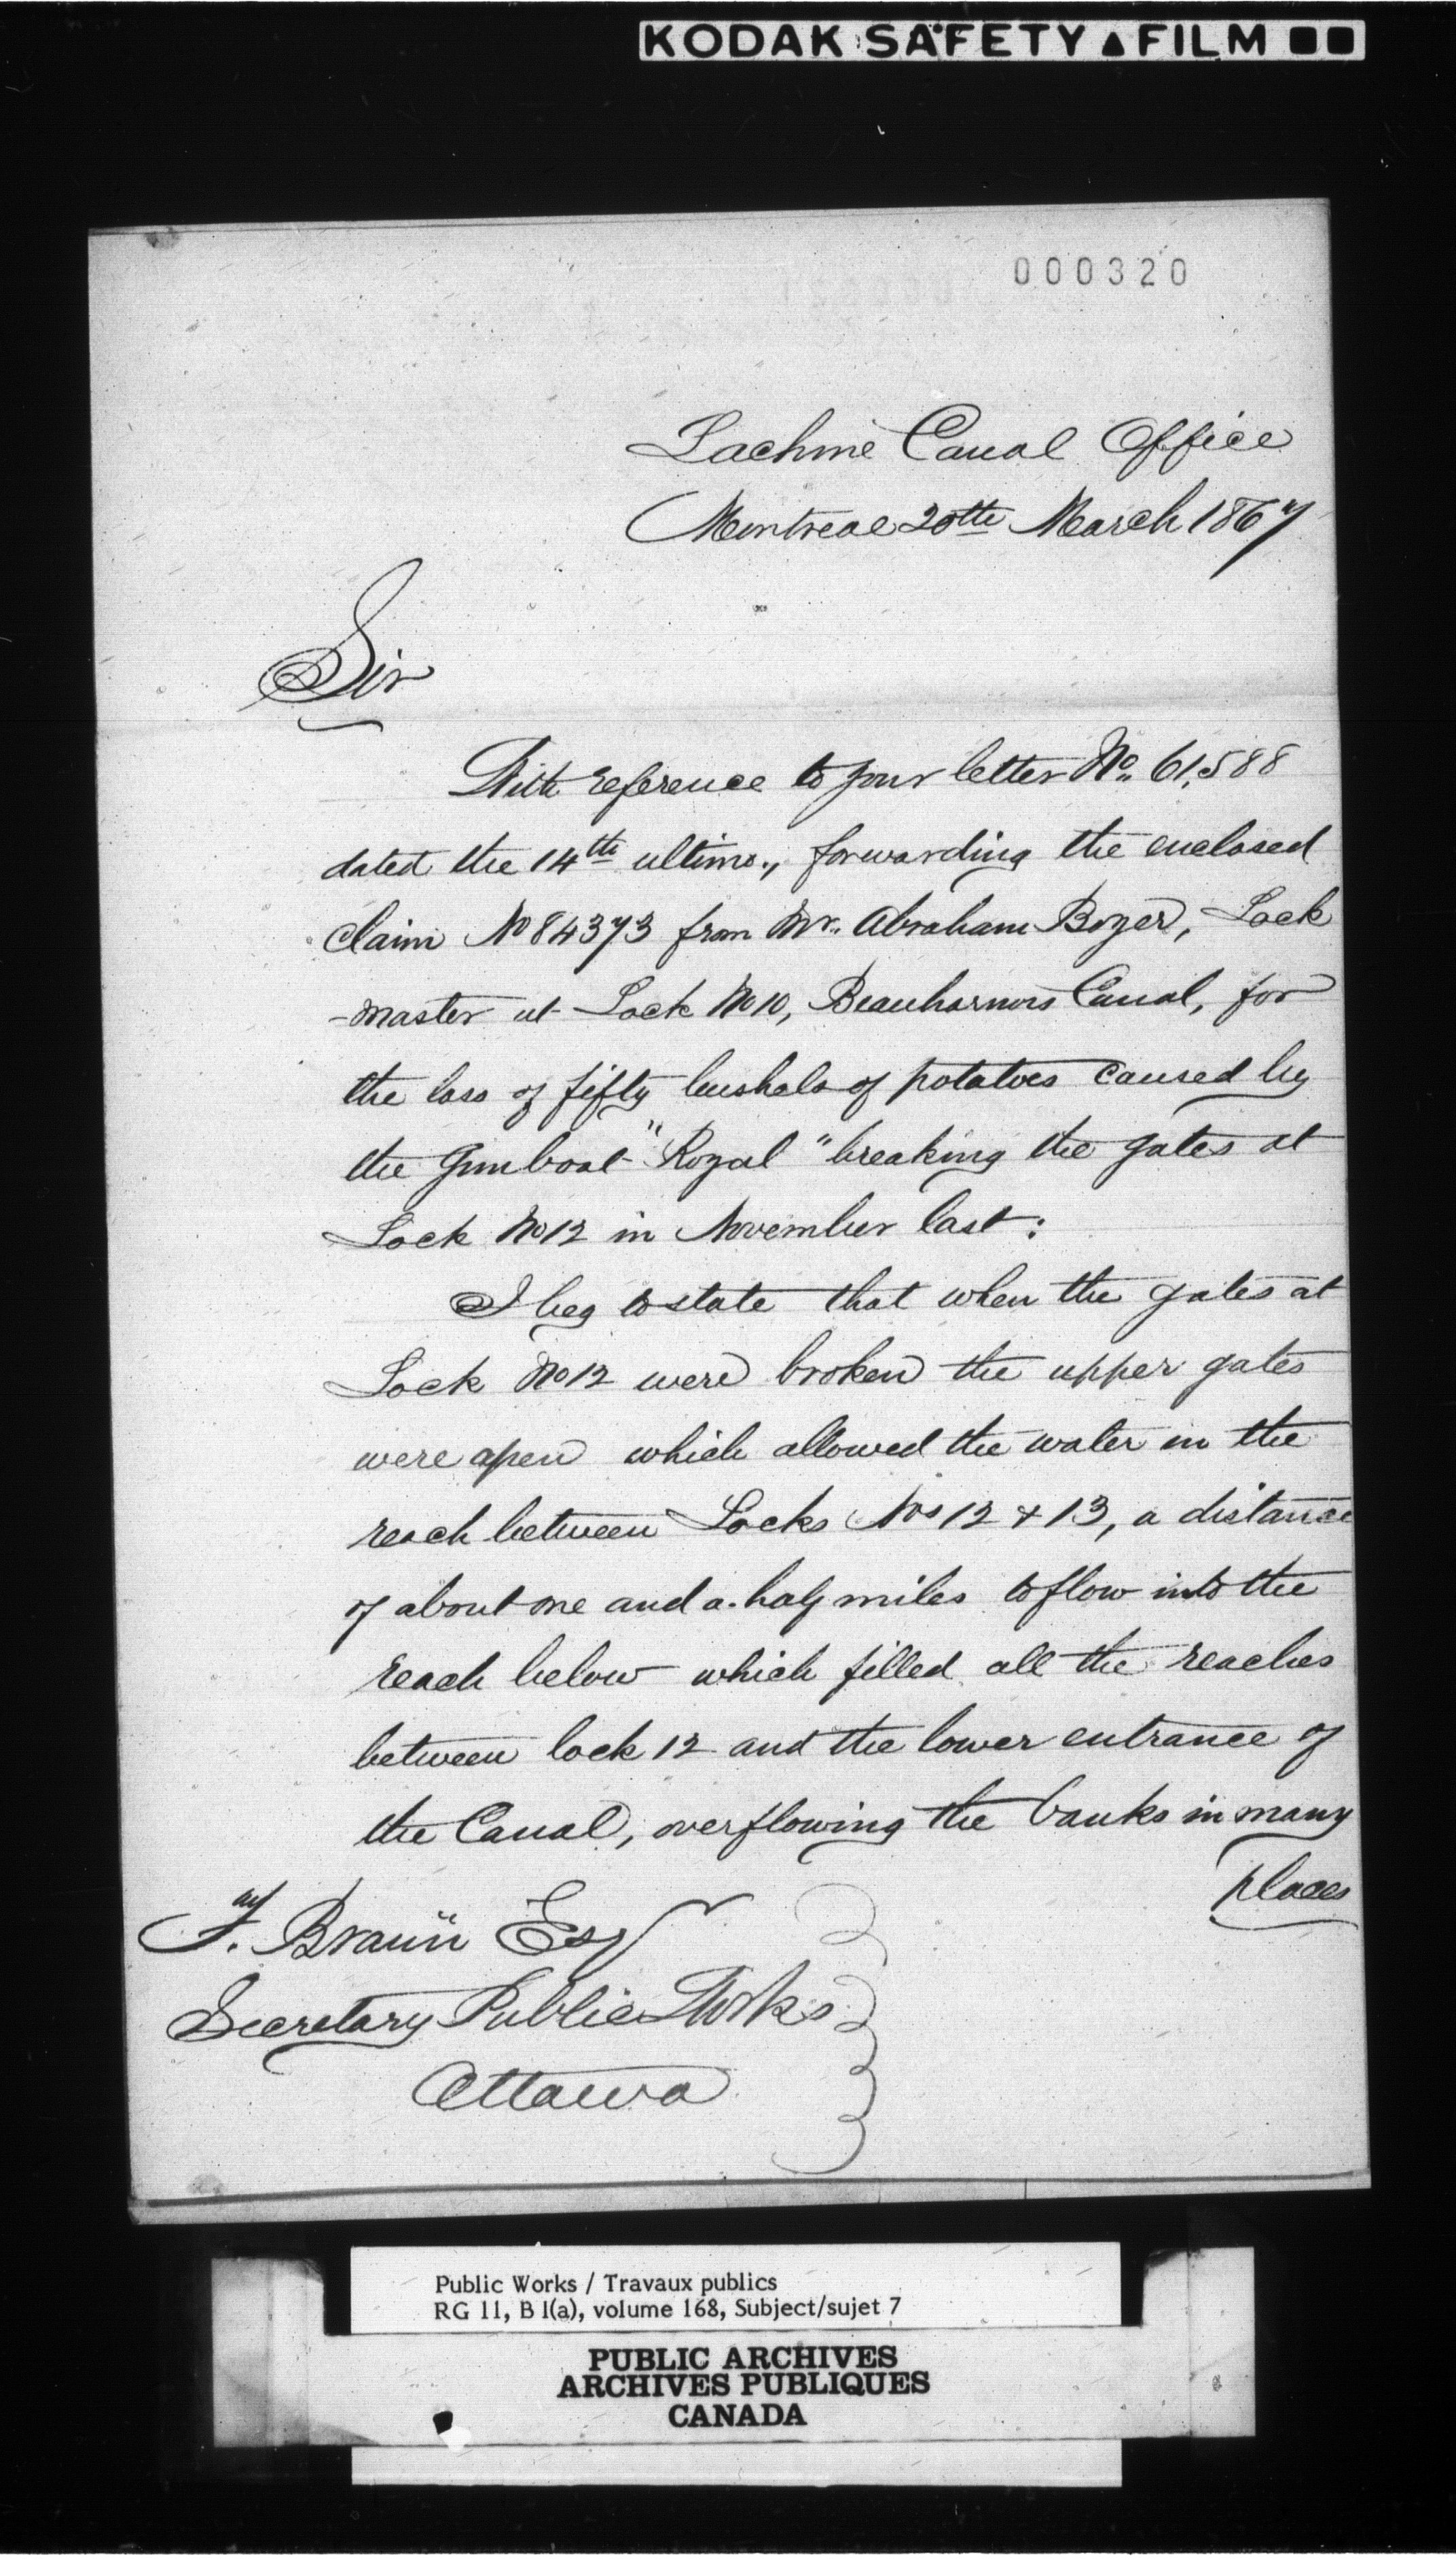 KODAK SAFETY FILM
000320
Lachine Canal Office
Montreal 20th March 1867
Sir
With reference to your letter No. 61,588
dated the 14th ultimo., forwarding the enclosed
claim No 84373 from Mr. Abraham Boyer, Lock
-master at Lock No 10, Beauharnois Canal, for
the loss of fifty bushels of potatoes caused by
the Gunboat "Royal" breaking the gates at
Lock No 12 in November last:
I beg to state that when the gates at
Lock No 12 were broken the upper gates
were open which allowed the water in the
reach between Locks Nos 12 & 13, a distance
of about one and a half miles to flow into the
reach below which filled all the reaches
between lock 12 and the lower entrance of
the Canal, overflowing the banks in many
places
F. Braun Esq
Secretary Public Works
Ottawa
Public Works / Travaux publics
RG 11, B 1(a), volume 168, Subject/sujet 7
PUBLIC ARCHIVES
ARCHIVES PUBLIQUES
CANADA